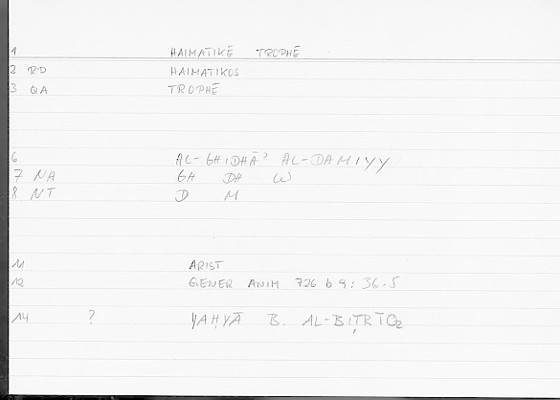 1 HAIMATIKĒ TROPHĒ
2 RD HAIMATIKOS
3 QA TROPHĒ
6 AL-GHIDHĀʾ AL-DAMIYY
7 NA GH DH W
8 NT D M
11 ARIST
12 GENER ANIM 726 b 9: 36.5
14 ? YAḤYĀ B. AL-BIṬRĪQ